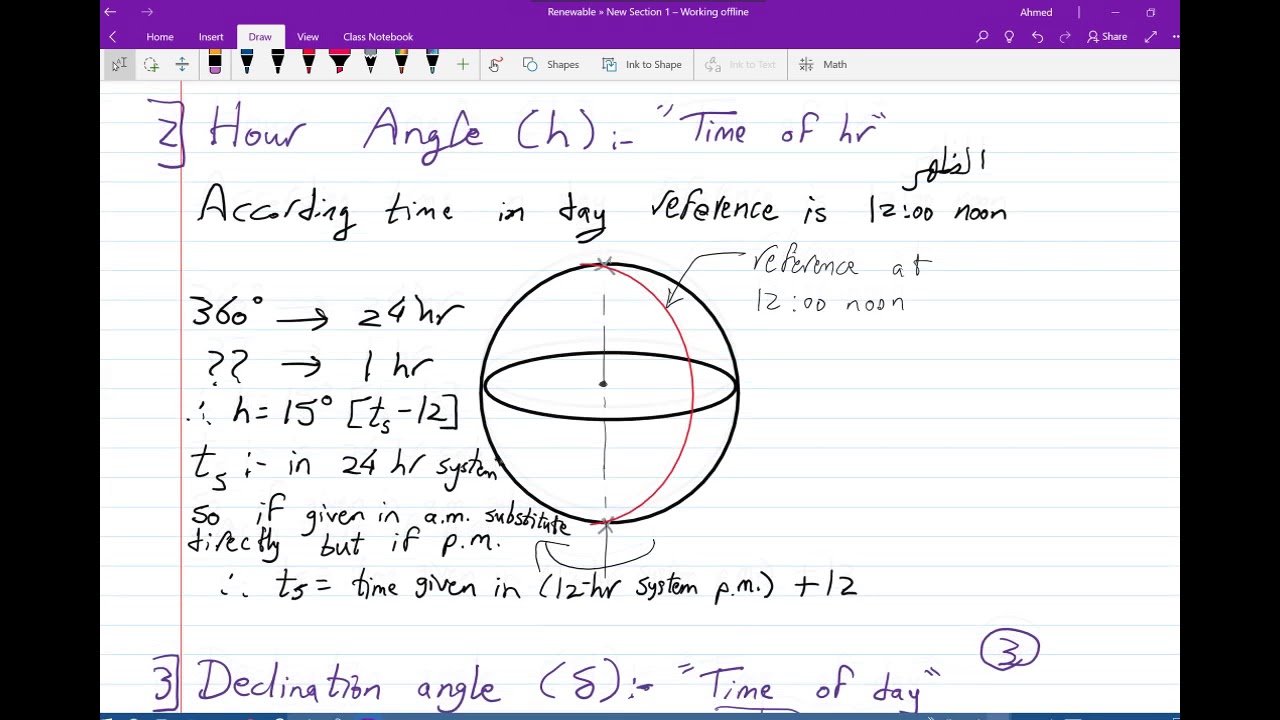 Renewable » New Section 1 – Working offline
Ahmed
Home Insert Draw View Class Notebook
Share
Shapes Ink to Shape Ink to Text Math
2] Hour Angle (h) :- "Time of hr"
الظهر
According time in day reference is 12:00 noon
reference at
12:00 noon
360° → 24 hr
?? → 1 hr
∴ h = 15° [ts - 12]
ts :- in 24 hr system
So if given in a.m. substitute
directly but if p.m.
∴ ts = time given in (12-hr system p.m.) + 12
3
3] Declination angle (δ) :- "Time of day"